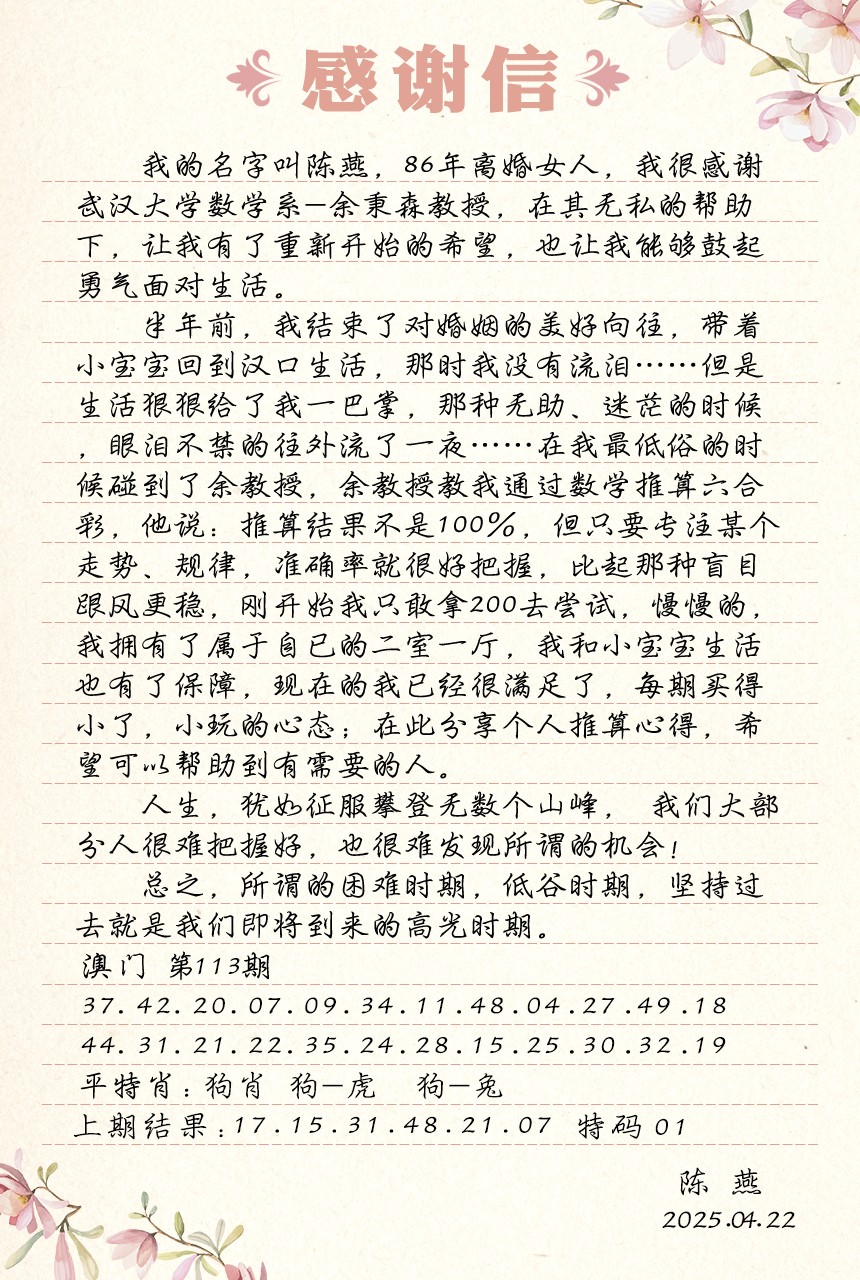 感谢信
我的名字叫陈燕，86年离婚女人，我很感谢
武汉大学数学系-余秉森教授，在其无私的帮助
下，让我有了重新开始的希望，也让我能够鼓起
勇气面对生活。
半年前，我结束了对婚姻的美好向往，带着
小宝宝回到汉口生活，那时我没有流泪……但是
生活狠狠给了我一巴掌，那种无助、迷茫的时候
，眼泪不禁的往外流了一夜……在我最低俗的时
候碰到了余教授，余教授教我通过数学推算六合
彩，他说：推算结果不是100%，但只要专注某个
走势、规律，准确率就很好把握，比起那种盲目
跟风更稳，刚开始我只敢拿200去尝试，慢慢的，
我拥有了属于自已的二室一厅，我和小宝宝生活
也有了保障，现在的我已经很满足了，每期买得
小了，小玩的心态；在此分享个人推算心得，希
望可以帮助到有需要的人。
人生，犹如征服攀登无数个山峰， 我们大部
分人很难把握好，也很难发现所谓的机会！
总之，所谓的困难时期，低谷时期，坚持过
去就是我们即将到来的高光时期。
澳门 第113期
37.42.20.07.09.34.11.48.04.27.49.18
44.31.21.22.35.24.28.15.25.30.32.19
平特肖：狗肖 狗-虎 狗-兔
上期结果：17.15.31.48.21.07 特码 01
陈 燕
2025.04.22